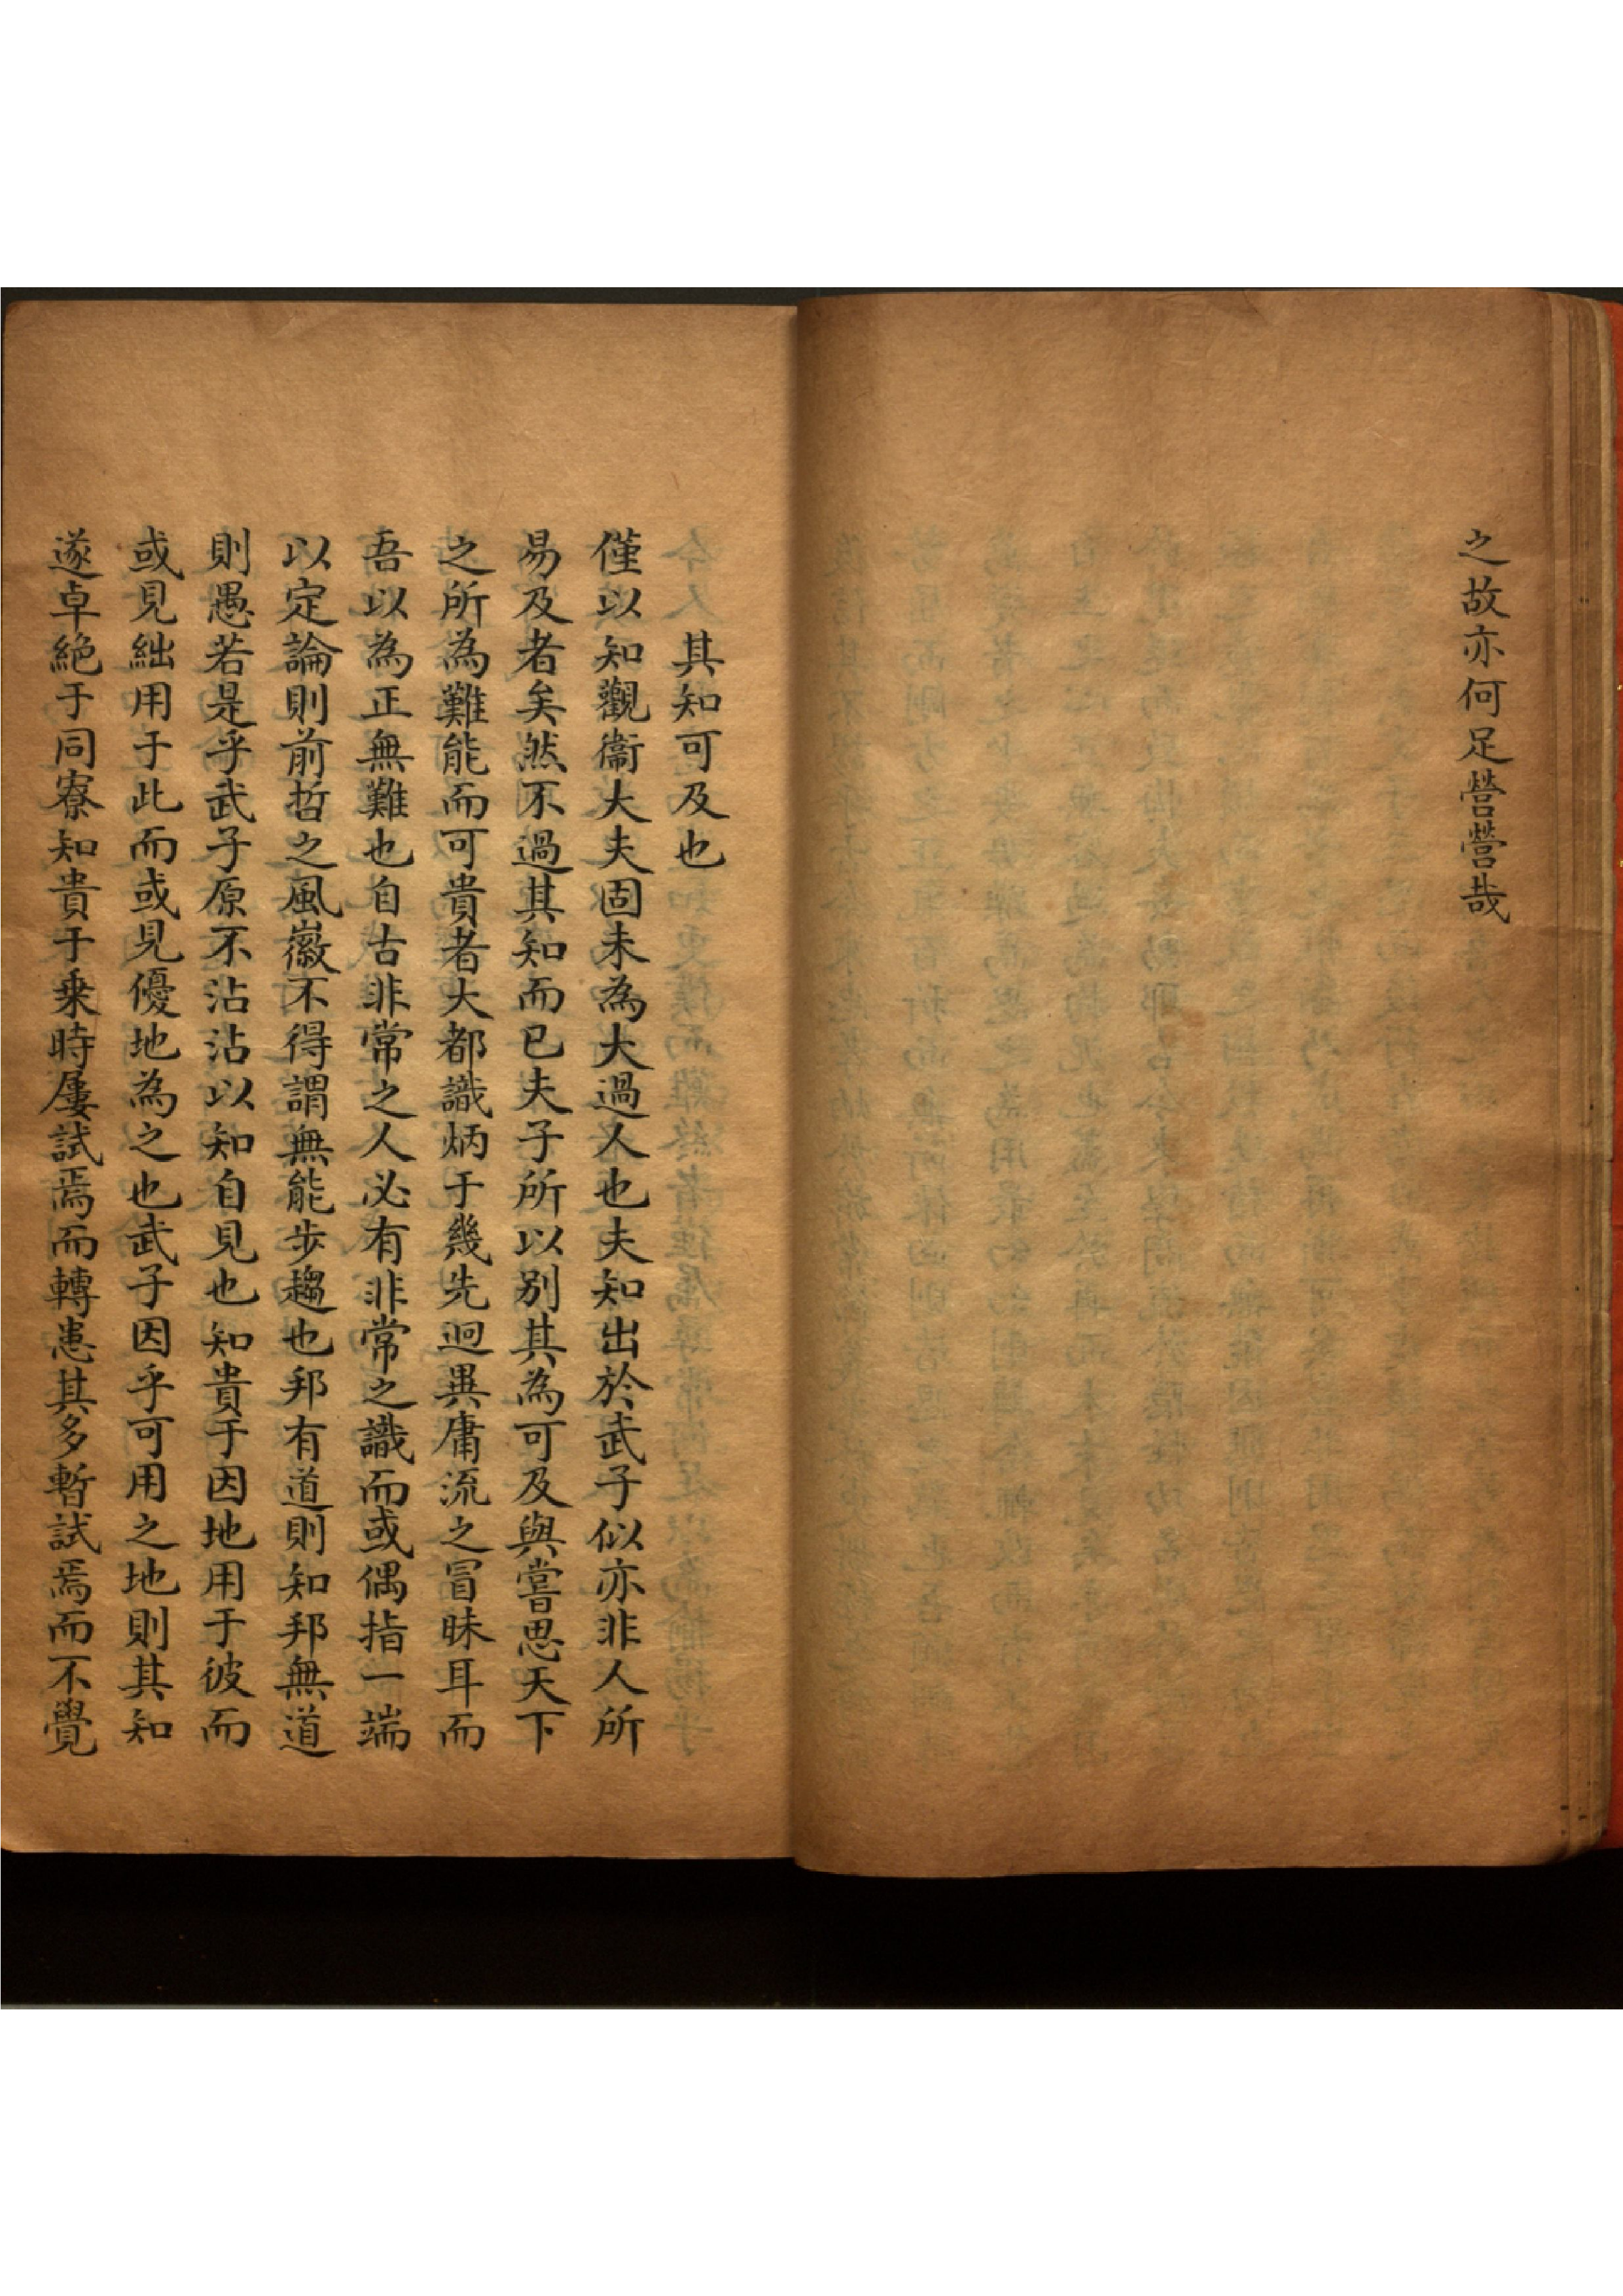 之故亦何足營營哉
其知可及也
僅以知觀衞大夫固未為大過人也夫知出於武子似亦非人所
易及者矣然不過其知而已夫子所以别其為可及與嘗思天下
之所為難能而可貴者大都識炳于幾先迥異庸流之冒昧耳而
吾以為正無難也自古非常之人必有非常之識而或偶指一端
以定論則前哲之風徽不得謂無能步趨也邦有道則知邦無道
則愚若是乎武子原不沾沾以知自見也知貴于因地用于彼而
或見絀用于此而或見優地為之也武子因乎可用之地則其知
遂卓絶于同寮知貴于乗時屢試焉而轉恚其多暫試焉而不覺